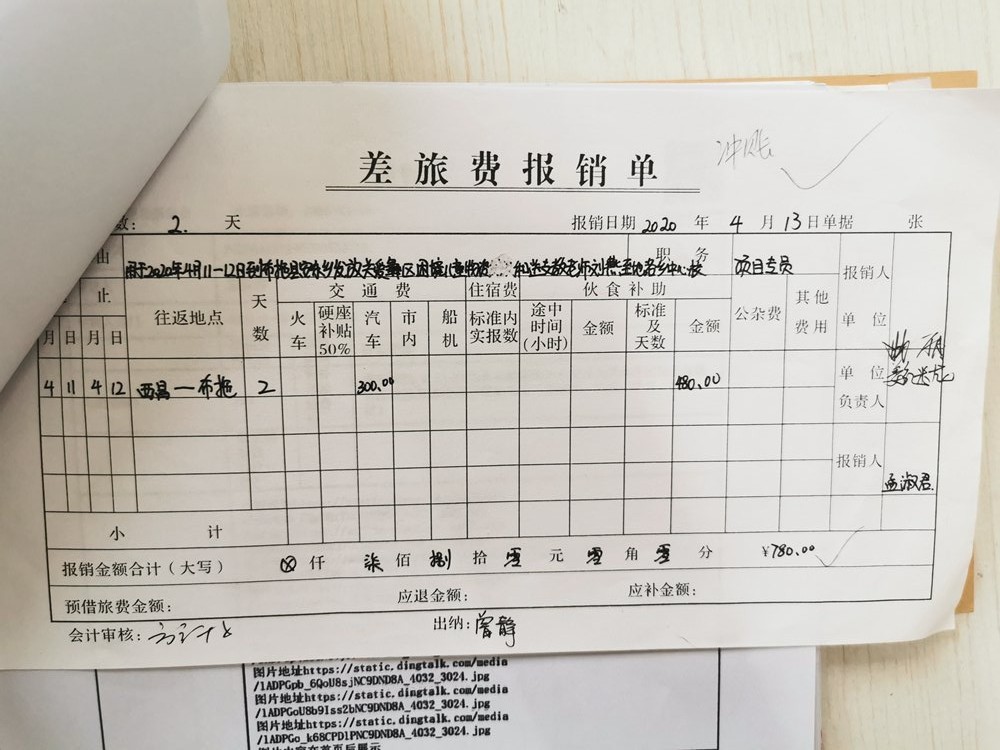 冲账
差旅费报销单
数： 2. 天 报销日期 2020 年 4 月 13 日 单据 张
由 用于2020年4月11-12日到布拖县 发放关爱 区困境儿童物资 和送支教老师 职务 项目专员 报销人
止 往返地点 天数 交通费 住宿费 伙食补助 公杂费 其他费用 单位
月 日 月 日 火车 硬座补贴50% 汽车 市内 船机 标准内实报数 途中时间(小时) 金额 标准及天数 金额
4 11 4 12 西昌—布拖 2 300.00 480.00 单位负责人
报销人 孟淑君
小计
报销金额合计（大写） ⊗ 仟 柒 佰 捌 拾 零 元 零 角 零 分 ¥780.00
预借旅费金额： 应退金额： 应补金额：
会计审核： 出纳： 曾静
图片地址https://static.dingtalk.com/media
/lADPGpb_6QoU8sjNC9DND8A_4032_3024.jpg
图片地址https://static.dingtalk.com/media
/lADPGoU8b9Iss2bNC9DND8A_4032_3024.jpg
图片地址https://static.dingtalk.com/media
/lADPGo_k68CPD1PNC9DND8A_4032_3024.jpg